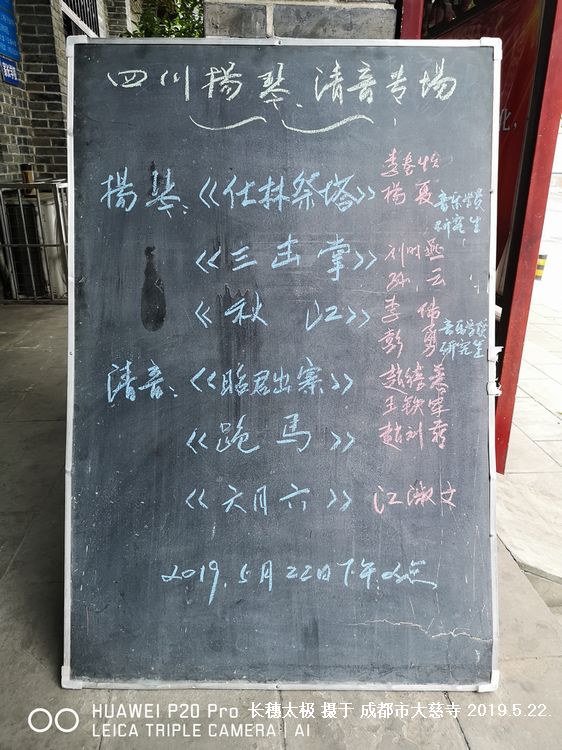 四川揚琴、清音专场
揚琴:《仕林祭塔》
揚 夏
音乐学员
研究生
《三击掌》
刘时燕
孙 云
《秋 江》
李 伟
彭 勇
音乐学院
研究生
清音:《昭君出塞》
《跑马》
《六月六》 江淑文
2019.5月22日下午2点
HUAWEI P20 Pro 长穗太极 摄于 成都市大慈寺 2019.5.22.
LEICA TRIPLE CAMERA | AI